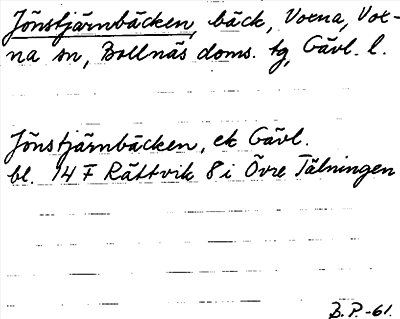 Jönstjärnbäcken, bäck, Voxna, Vox-
na sn, Bollnäs doms. tg, Gävl. l.
Jönstjärnbäcken, ek Gävl.
bl. 14 F Rättvik 8 i Övre Tälningen
B.P.-61.